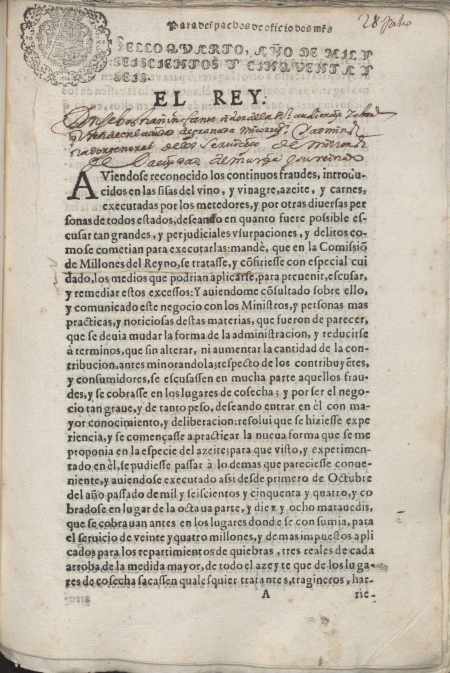 28 Julio
Para despachos de oficio dos mrs
SELLO QVARTO, AÑO DE MIL Y
SEISCIENTOS Y CINQVENTA Y
SEIS.
EL REY.
AViendose reconocido los continuos fraudes, introdu-
cidos en las sisas del vino, y vinagre, azeite, y carnes,
executadas por los metedores, y por otras diuersas per
sonas de todos estados, deseando en quanto fuere possible es-
cusar tan grandes, y perjudiciales vsurpaciones, y delitos co-
mo se cometian para executarlas: mandè, que en la Comissiō
de Millones del Reyno, se tratasse, y cōfiriesse con especial cui
dado, los medios que podrian aplicarse, para preuenir, escusar,
y remediar estos excessos: Y auiendome cōsultado sobre ello,
y comunicado este negocio con los Ministros, y personas mas
practicas, y noticiosas destas materias, que fueron de parecer,
que se deuia mudar la forma de la administracion, y reducirse
à terminos, que sin alterar, ni aumentar la cantidad de la con-
tribucion, antes minorandola, respecto de los contribuyētes,
y consumidores, se escusassen en mucha parte aquellos frau-
des, y se cobrasse en los lugares de cosecha; y por ser el nego-
cio tan graue, y de tanto peso, deseando entrar en èl con ma-
yor conocimiento, y deliberacion: resolui que se hiziesse expe
riencia, y se començasse a practicar la nueua forma que se me
proponia en la especie del azeite; para que visto, y experimen-
tado en èl, se pudiesse passar à lo demas que pareciesse conue-
niente, y auiendose executado assi desde primero de Octubre
del año passado de mil y seiscientos y cinquenta y quatro, y co
bradose en lugar de la octaua parte, y diez y ocho marauedis,
que se cobrauan antes en los lugares donde se consumia, para
el seruicio de veinte y quatro millones, y demas impuestos apli
cados para los repartimientos de quiebras, tres reales de cada
arroba, de la medida mayor, de todo el azeyte que de los luga-
res de cosecha sacassen qualesquier tratantes, tragineros, har-
A rie-